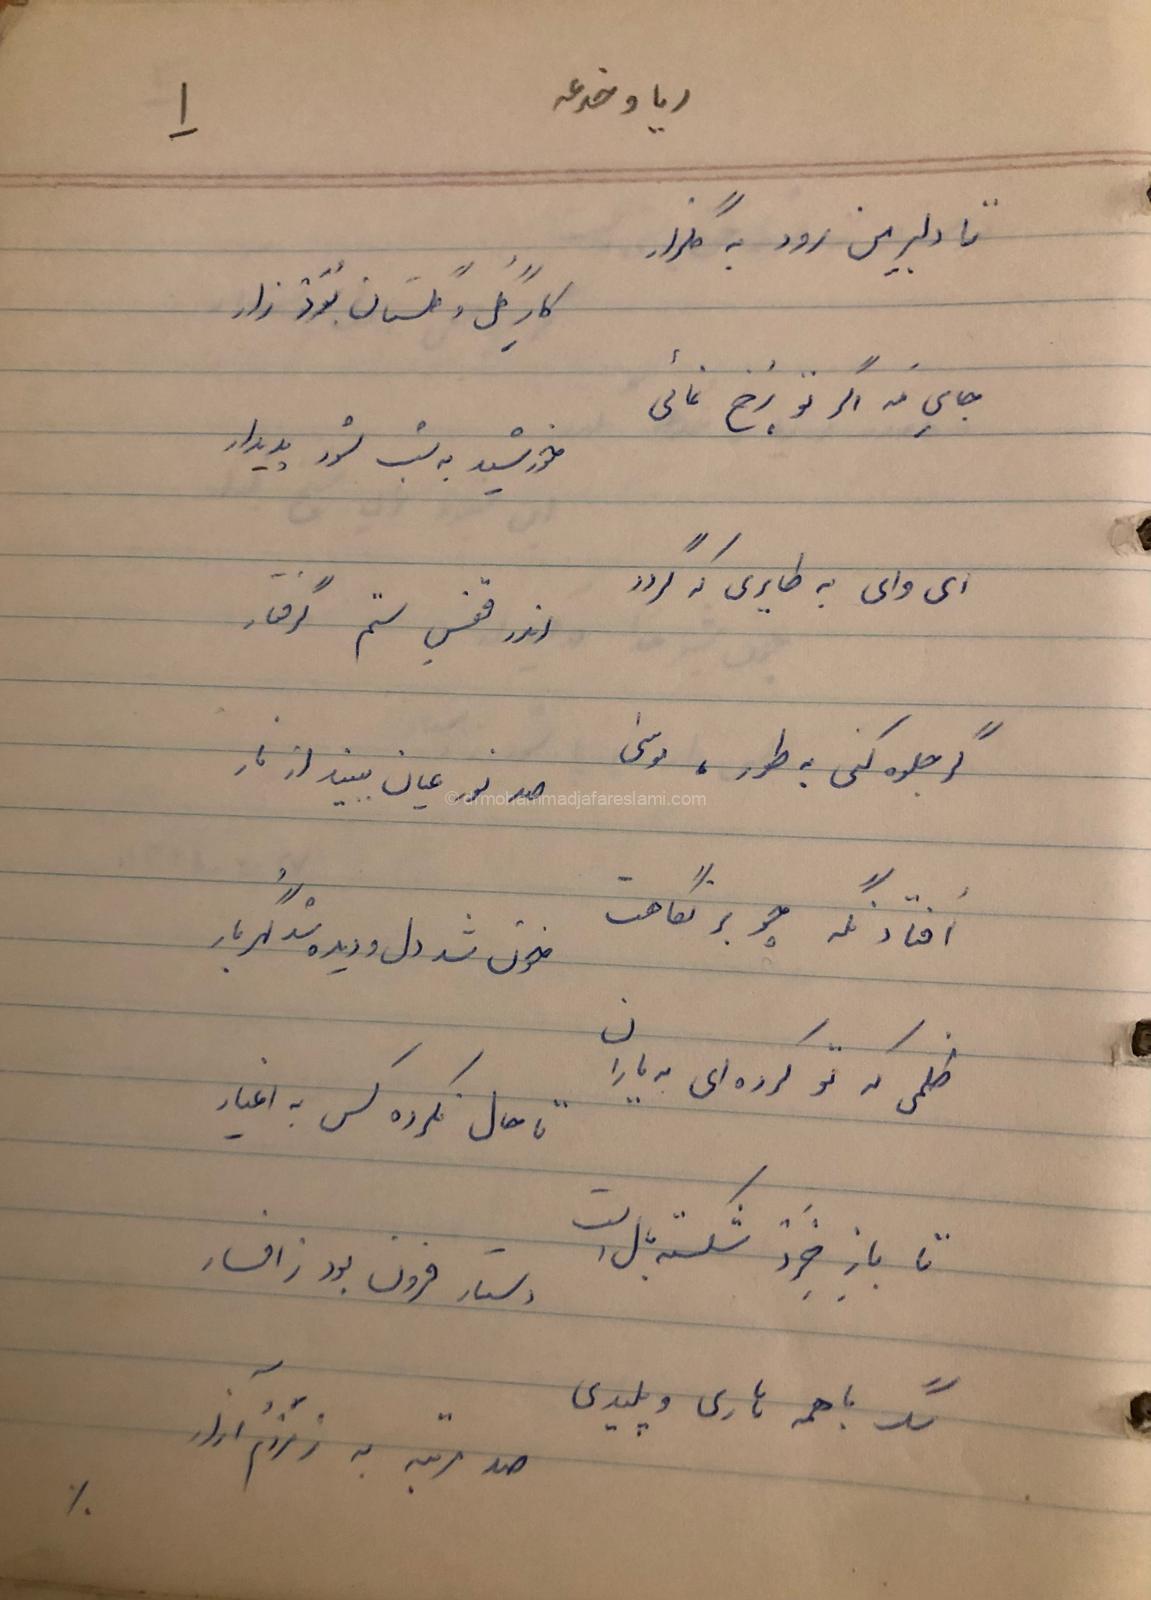 ریا و خدعه
۱
تا دلبرِ من رود به گلزار
کارِ گُل و گلستان بُوَد زار
جایی که اگر تو رُخ نمائی
خورشید به شب شود پدیدار
ای وای به طایری که گردد
اندر قفسِ ستم گرفتار
گر جلوه کنی به طور، موسیٰ
صد نور عیان ببیند از نار
اُفتاد نگه چو بر نگاهت
خون شد دل و دیده شد گُهربار
ظلمی که تو کرده‌ای به یاران
تا حال نکرده کس به اغیار
تا بازِ خِرَد شکسته بال است
دستار فزون بود ز افسار
سگ با همه هاری و پلیدی
صد مرتبه به ز مَردُم آزار
٪
© drmohammadjafareslami.com